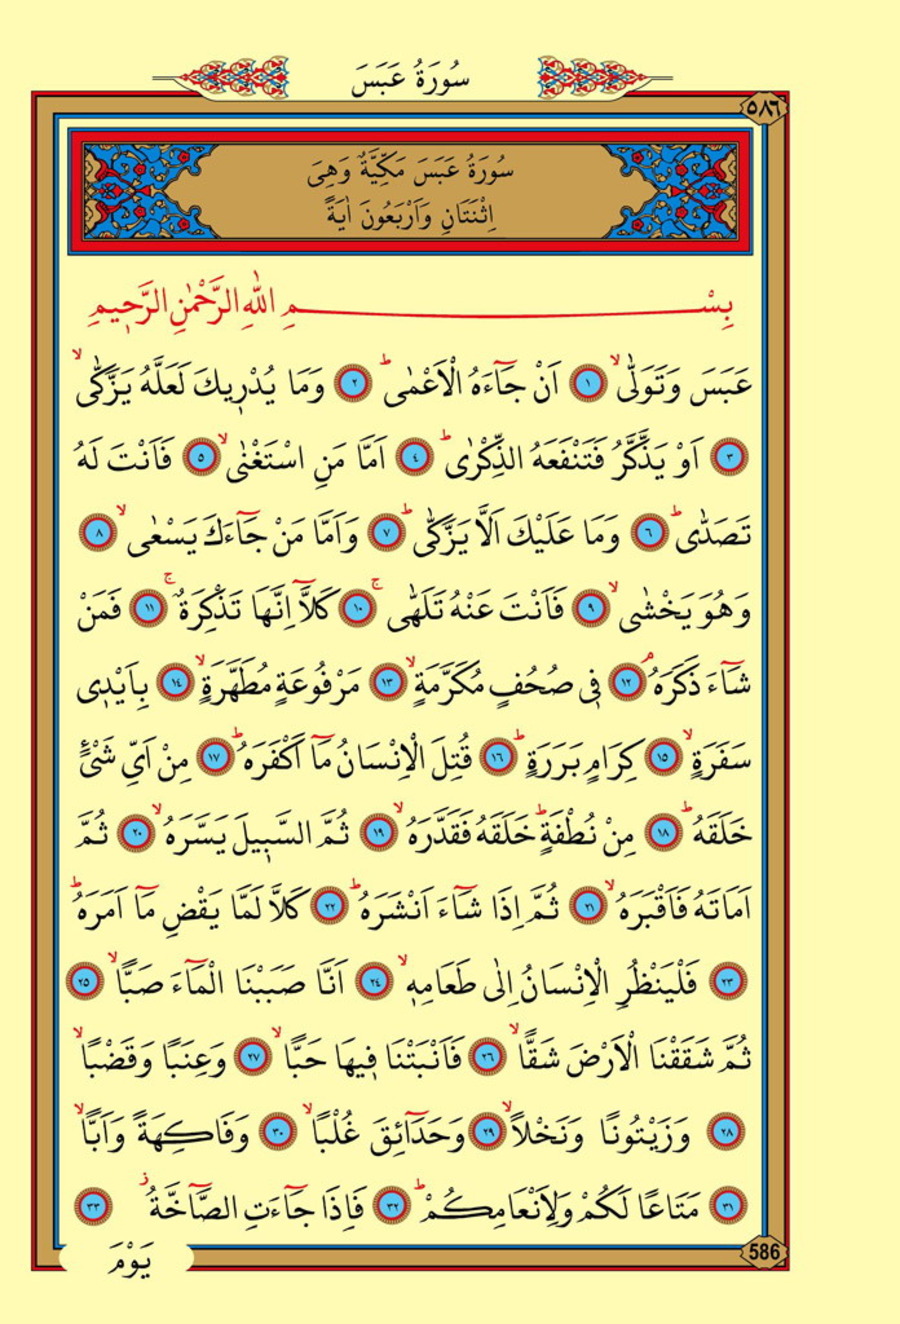 سُورَةُ عَبَسَ
٥٨٦
سُورَةُ عَبَسَ مَكِّيَّةٌ وَهِىَ
اِثْنَتَانِ وَاَرْبَعُونَ اٰيَةً
بِسْمِ اللّٰهِ الرَّحْمٰنِ الرَّحٖيمِ
عَبَسَ وَتَوَلّٰىۙ ١ اَنْ جَٓاءَهُ الْاَعْمٰىۜ ٢ وَمَا يُدْرٖيكَ لَعَلَّهُ يَزَّكّٰىۙ
٣ اَوْ يَذَّكَّرُ فَتَنْفَعَهُ الذِّكْرٰىۜ ٤ اَمَّا مَنِ اسْتَغْنٰىۙ ٥ فَاَنْتَ لَهُ
تَصَدّٰىۜ ٦ وَمَا عَلَيْكَ اَلَّا يَزَّكّٰىۜ ٧ وَاَمَّا مَنْ جَٓاءَكَ يَسْعٰىۙ ٨
وَهُوَ يَخْشٰىۙ ٩ فَاَنْتَ عَنْهُ تَلَهّٰىۚ ١٠ كَلَّٓا اِنَّهَا تَذْكِرَةٌۚ ١١ فَمَنْ
شَٓاءَ ذَكَرَهُۢ ١٢ فٖى صُحُفٍ مُكَرَّمَةٍۙ ١٣ مَرْفُوعَةٍ مُطَهَّرَةٍۙ ١٤ بِاَيْدٖى
سَفَرَةٍۙ ١٥ كِرَامٍ بَرَرَةٍۜ ١٦ قُتِلَ الْاِنْسَانُ مَٓا اَكْفَرَهُۜ ١٧ مِنْ اَىِّ شَىْءٍ
خَلَقَهُۜ ١٨ مِنْ نُطْفَةٍۜ خَلَقَهُ فَقَدَّرَهُۙ ١٩ ثُمَّ السَّبٖيلَ يَسَّرَهُۙ ٢٠ ثُمَّ
اَمَاتَهُ فَاَقْبَرَهُۙ ٢١ ثُمَّ اِذَا شَٓاءَ اَنْشَرَهُۜ ٢٢ كَلَّا لَمَّا يَقْضِ مَٓا اَمَرَهُۜ
٢٣ فَلْيَنْظُرِ الْاِنْسَانُ اِلٰى طَعَامِهٖۙ ٢٤ اَنَّا صَبَبْنَا الْمَٓاءَ صَبًّاۙ ٢٥
ثُمَّ شَقَقْنَا الْاَرْضَ شَقًّاۙ ٢٦ فَاَنْبَتْنَا فٖيهَا حَبًّاۙ ٢٧ وَعِنَبًا وَقَضْبًاۙ
٢٨ وَزَيْتُونًا وَنَخْلًاۙ ٢٩ وَحَدَٓائِقَ غُلْبًاۙ ٣٠ وَفَاكِهَةً وَاَبًّاۙ
٣١ مَتَاعًا لَكُمْ وَلِاَنْعَامِكُمْۜ ٣٢ فَاِذَا جَٓاءَتِ الصَّٓاخَّةُؗ ٣٣
يَوْمَ
586